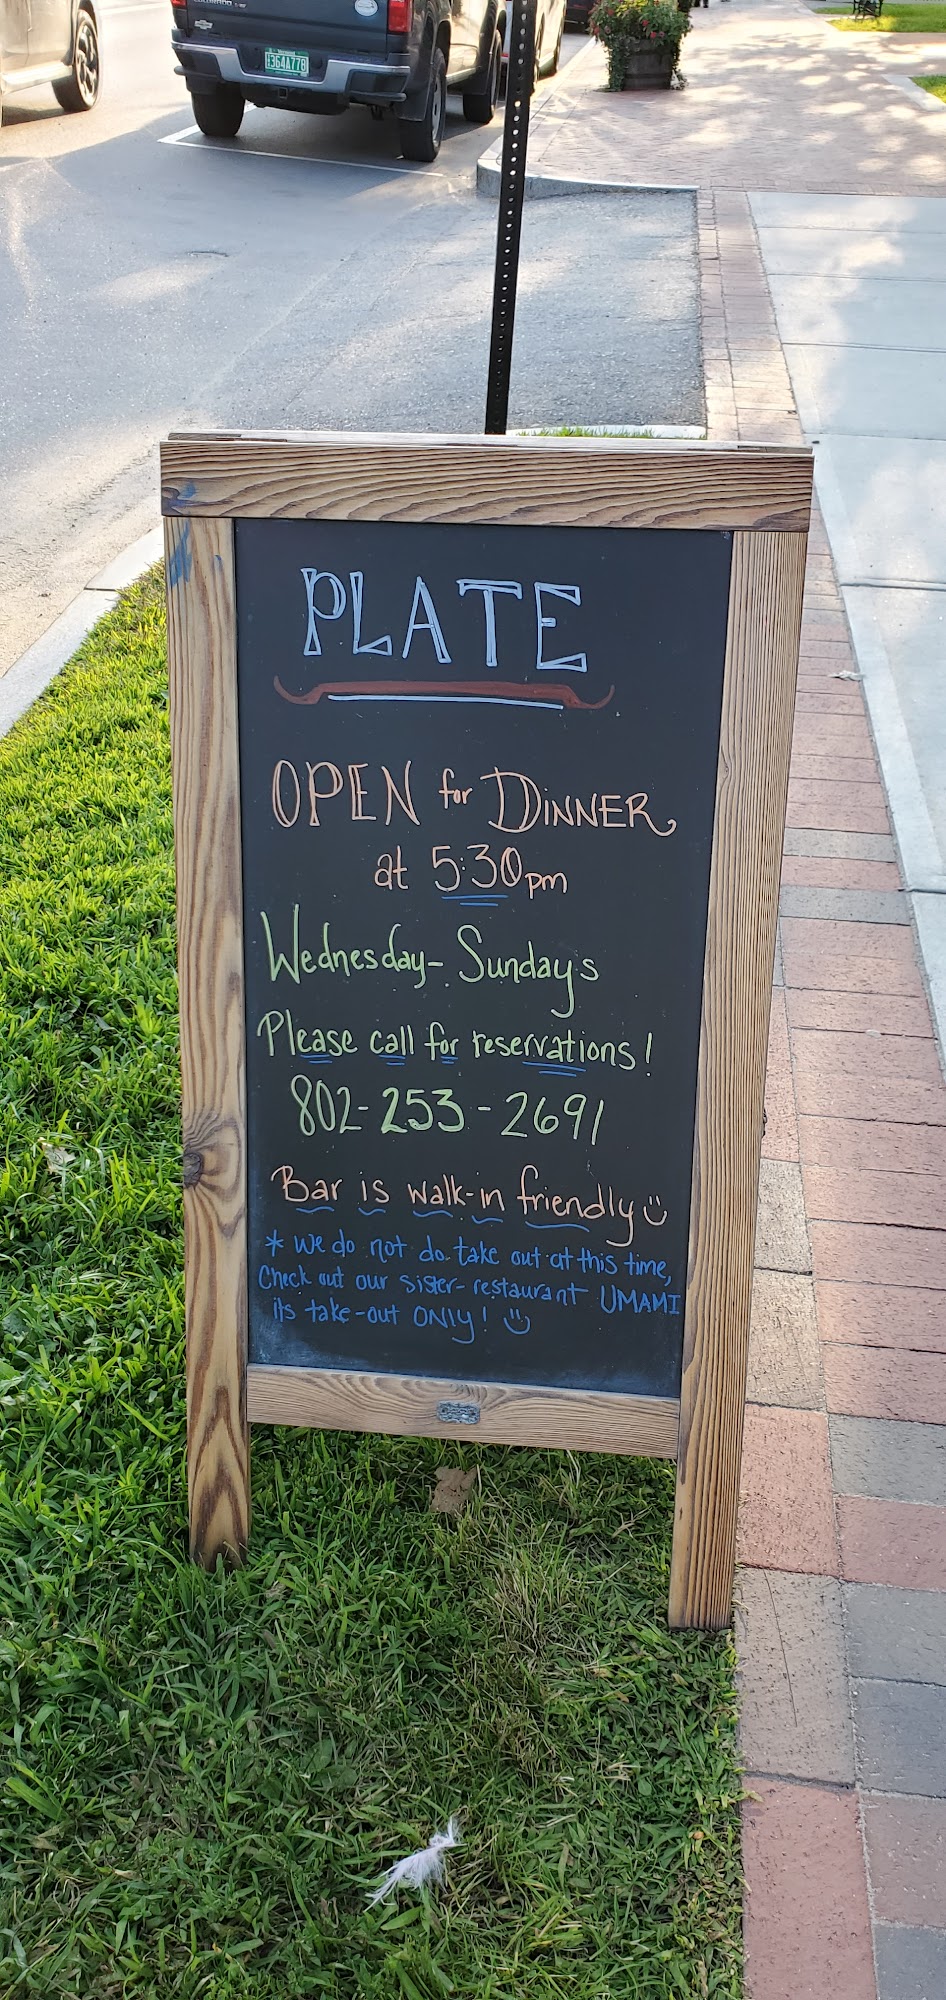 1364A778
PLATE
OPEN for DINNER
at 5:30pm
Wednesday- Sundays
Please call for reservations!
802-253-2691
Bar is walk-in friendly
* we do not do take out at this time,
Check out our sister-restaurant UMAMI
its take-out ONLY!